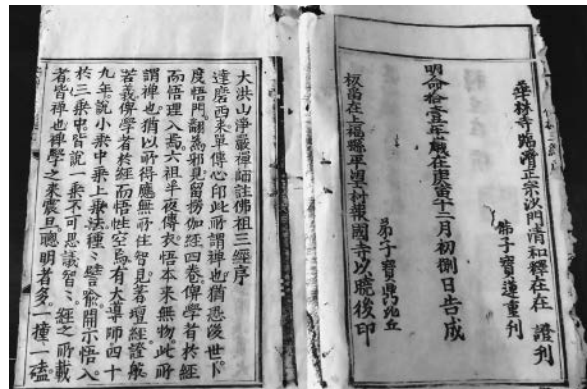 華林寺臨濟正宗沙門清和釋在在 證刋
弟子寶蓮重刋
明命拾壹年歲在庚寅十二月初捌日告成
弟子寶鼎比丘
板畱在上福縣平望村報國寺以曉後印
大洪山淨嚴禪師註佛祖三經序
達磨西來單傳心印此所謂禪也猶恐後世卜
度悟門翻爲邪見留楞伽經四卷俾學者於經
而悟理入焉六祖半夜傳衣悟本來無物此所
謂禪也猶以所得應無所住智見著壇經證般
若義俾學者於經而悟性空焉有大導師四十
九年說小乘中乘上乘法種〻譬喻開示悟入
於三乘中皆說一乘不可思議智〻經之所載
者皆禪也禪學之來震旦聰明者多一撞一磕